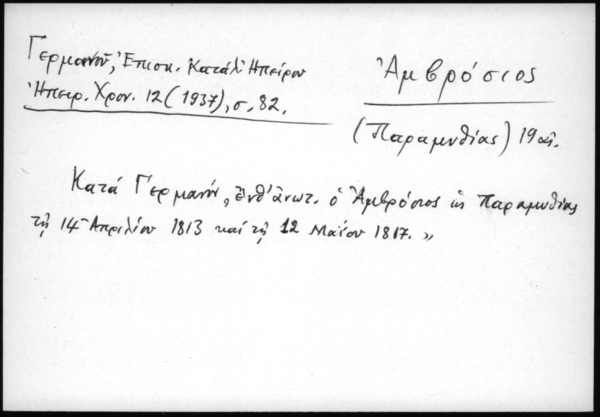 Γερμανοῦ, Ἐπισκ. Κατάλ. Ἠπείρου
Ἠπειρ. Χρον. 12 (1937), σ. 82.
Ἀμβρόσιος
(Παραμυθίας) 19 αἰ.
Κατά Γερμανόν, ἔνθ' ἀνωτ. ὁ Ἀμβρόσιος ὡς Παραμυθίας
τῇ 14 Ἀπριλίου 1813 καί τῇ 12 Μαΐου 1817. »